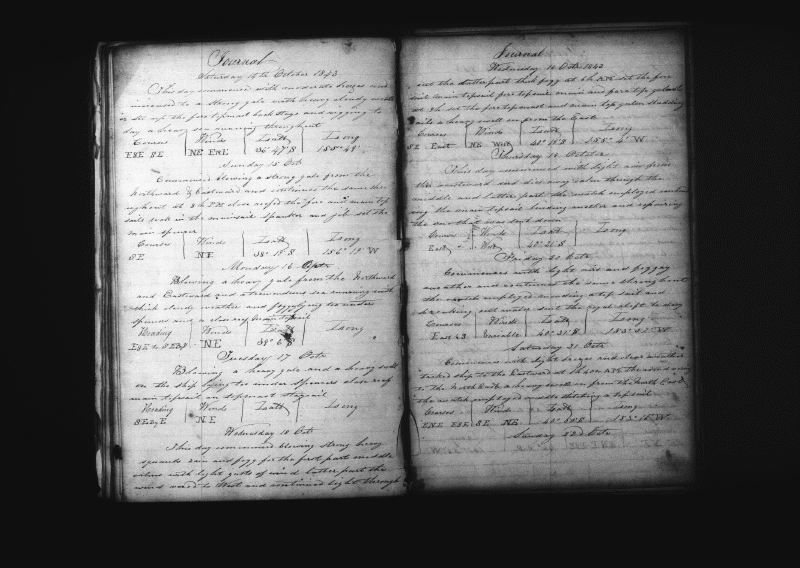 Journal
Saturday 14th October 1843
This day commenced with moderate breezes and
increased to a strong gale with heavy cloudy weather
set up the fore topmast back stays and rigging to
day a heavy sea running throughout
Courses Winds Latt Long
ESE SE NE ENE 36° 47' S 158° 49'
Sunday 15 Oct
Commences blowing a strong gale from the
Northward & Eastward and continues the same thro
ughout at 3 h PM close reefed the fore and main top
sails took in the mainsail spanker and jib set the
main spencer
Courses Winds Latt Long
SE NE 38° 19' S 156° 19' W
Monday 16 Oct
Blowing a heavy gale from the Northward
and Eastward and a tremendous sea running with
thick cloudy weather and foggy lying too under
spencers and a close reef main topsail
Heading Winds Latt Long
ESE to SEbyS NE 39° 6' S
Tuesday 17 Octr
Blowing a heavy gale and a heavy swell
on the ship lying too under spencers close reef
main topsail and topmast staysail
Heading Winds Latt Long
SEbyE NE
Wednesday 18 Octr
This day commenced blowing strong heavy
squalls rain and fogg for the first part middle
calms with light gusts of wind latter part the
wind veered to West and continued light through
Journal
Wednesday 18 Octr 1843
out the latter part thick fogg at 6 h AM set the fore
sail main topsail fore topsail main and fore top galantsails
at 8 h set the fore topmast and main top galant studding
sails a heavy swell on from the East
Courses Winds Latt Long
SE East NE West 41° 18' S 155° W
Thursday 19 October
This day commenced with light airs from
the eastward and died away calm through the
middle and latter part the watch employed
the main topsail bending another and repairing
the one that was sent down
Course Winds Latt Long
East West 40° 21' S
Friday 20 Octr
Commences with light airs and foggy
weather and continues the same throughout
the watch employed mending a top sail and
Courses Winds Latt Long
East Variable 40° W
Saturday 21 Octr
Commences with light breeze and clear weather
tacked ship to the Eastward at
to the North East a heavy swell on from the North East
the watch employed middle stitching a topsail
Courses Winds Latt Long
ENE ESE SE NE W
Sunday 22d Octr